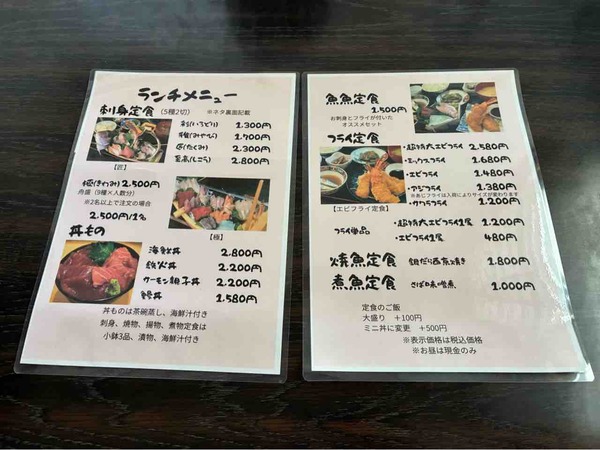 ランチメニュー
刺身定食 (5種2切) ※ネタ裏面記載
彩(いろどり) 1.300円
雅(みやび) 1.700円
匠(たくみ) 2.300円
2.800円
【匠】
極(きわみ) 2.500円
舟盛 (9種×人数分)
※2名以上で注文の場合
2.500円/1名
【極】
丼もの
海鮮丼 2.800円
鉄火丼 2.200円
サーモン親子丼 2.200円
1.580円
丼ものは茶碗蒸し、海鮮汁付き
刺身、焼物、揚物、煮物定食は
小鉢3品、漬物、海鮮汁付き
魚魚定食
1.500円
お刺身とフライが付いた
オススメセット
フライ定食
・超特大エビフライ 2.580円
・ミックスフライ 1.680円
・エビフライ 1.480円
・アジフライ 1.380円
※あじフライは入荷によりサイズが変わります
・サワラフライ 1.200円
【エビフライ定食】
フライ単品
・超特大エビフライ1尾 1.200円
・エビフライ1尾 480円
焼魚定食 銀だら西京焼き 1.800円
煮魚定食 さば味噌煮 1.000円
定食のご飯
大盛り +100円
ミニ丼に変更 +500円
※表示価格は税込価格
※お昼は現金のみ